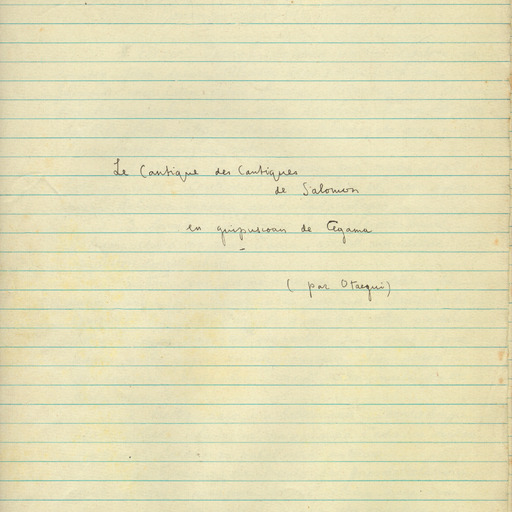 Le Cantique des Cantiques
de Salomon
en guipuscoan de Cegama
(par Otaegui)